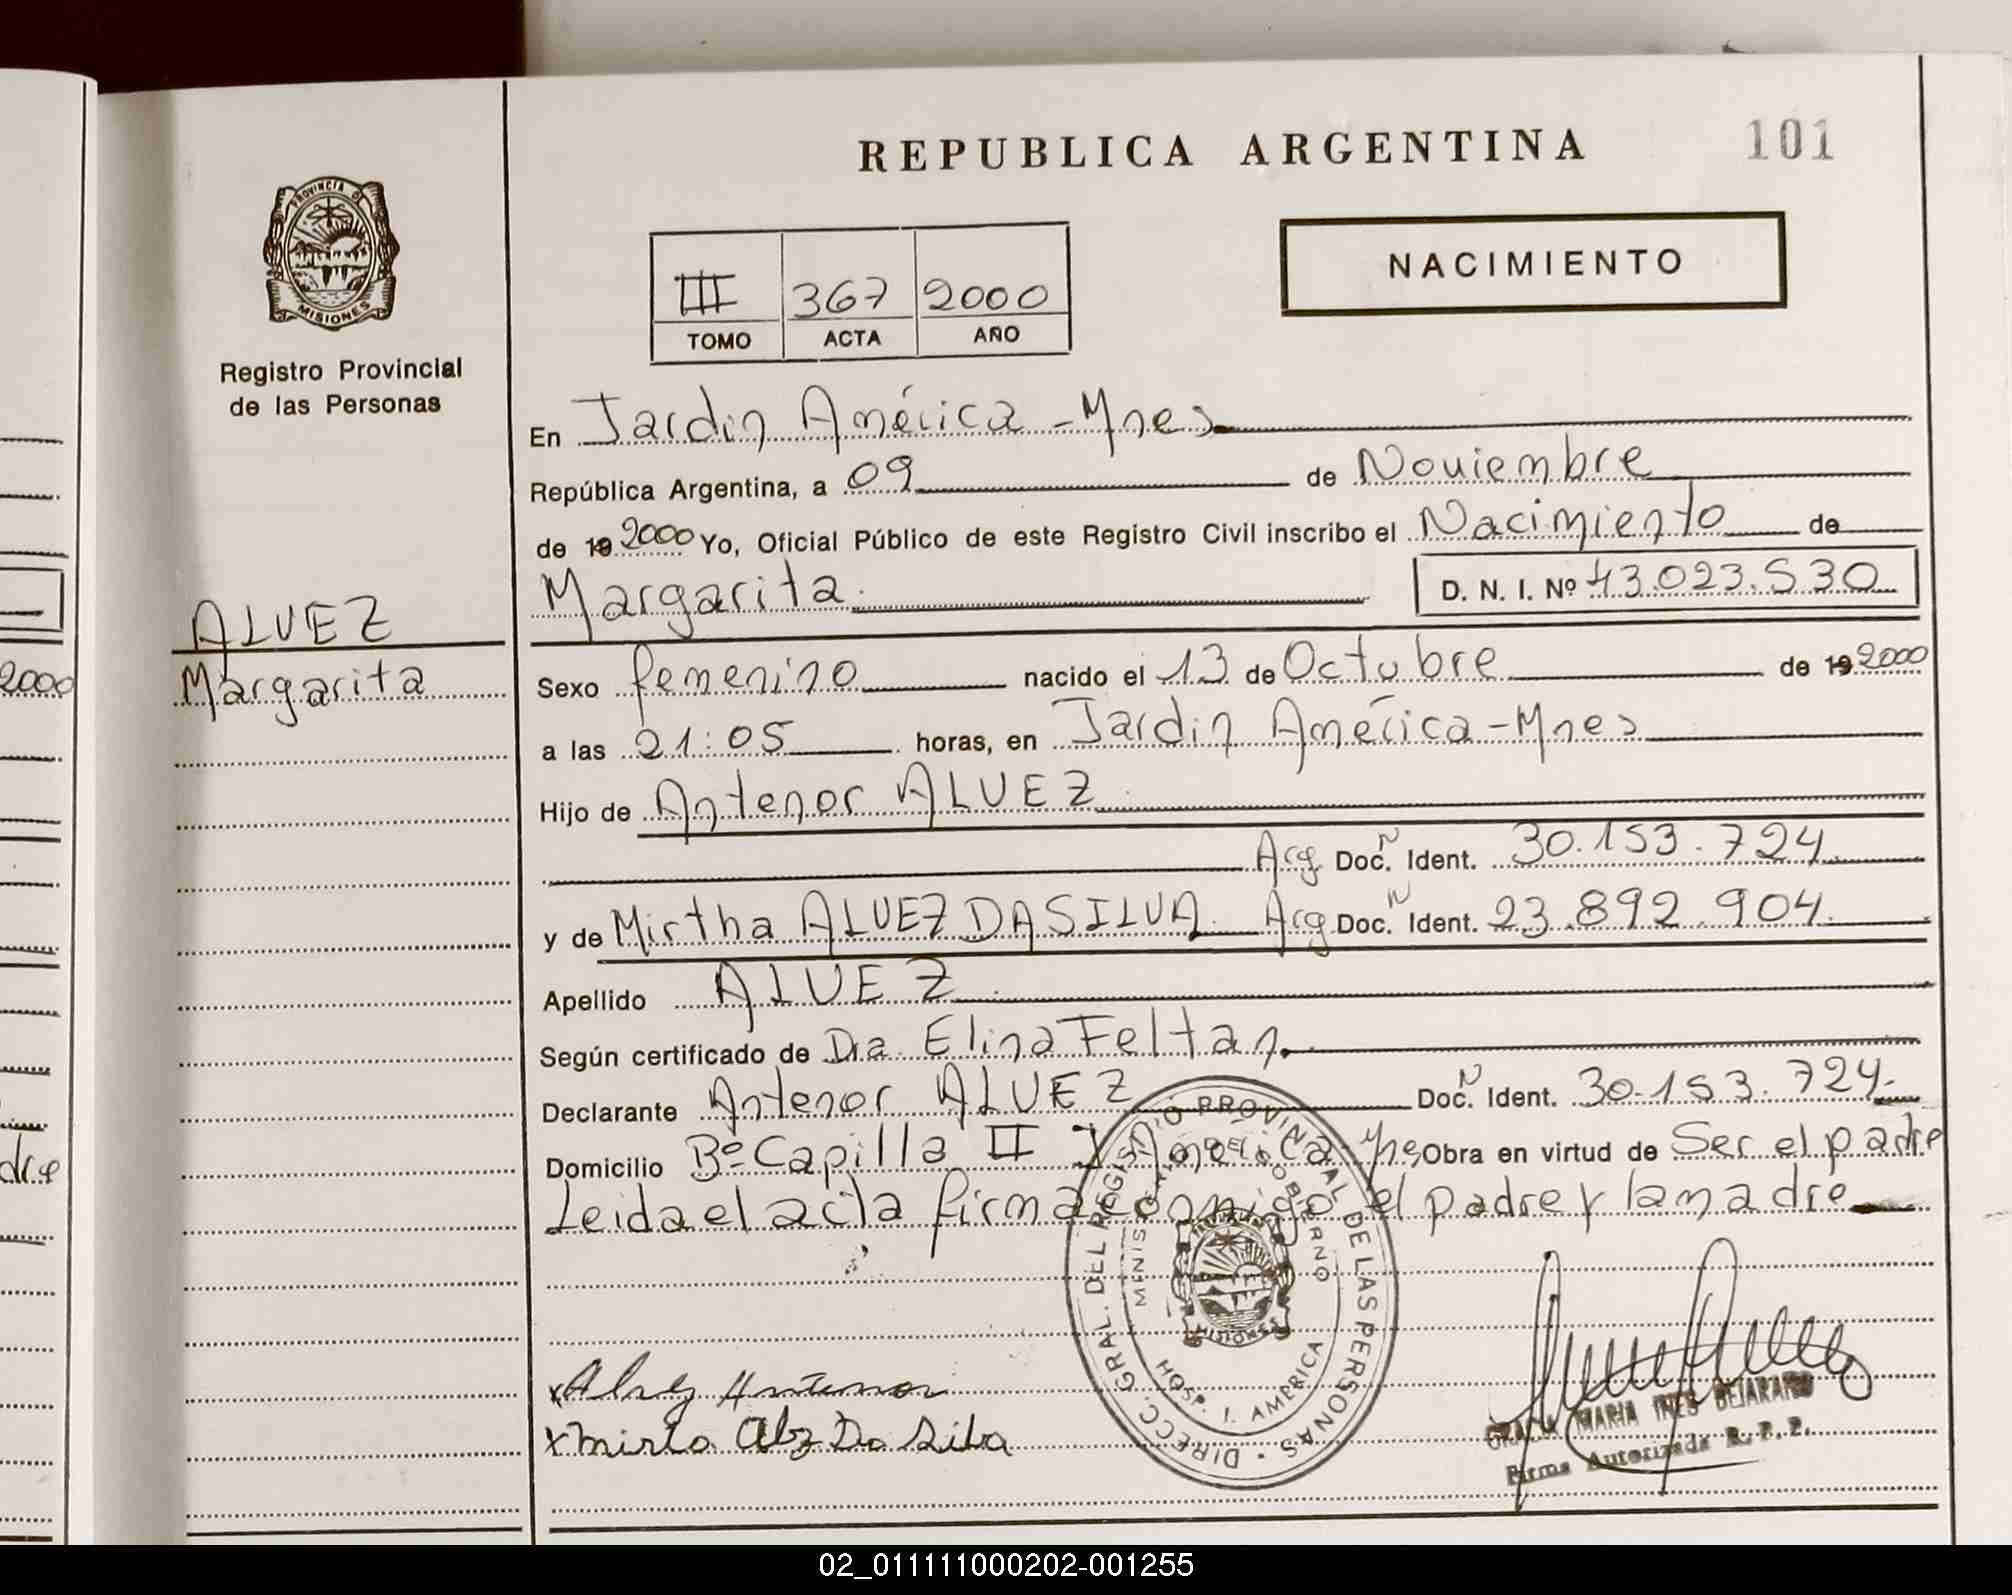 REPUBLICA ARGENTINA
101
PROVINCIA DE
MISIONES
Registro Provincial
de las Personas
III 367 2000
TOMO ACTA AÑO
NACIMIENTO
En Jardin América - Mnes
República Argentina, a 09 de Noviembre
de 19 2000 Yo, Oficial Público de este Registro Civil inscribo el Nacimiento de
Margarita D. N. I. Nº 43.023.530
ALVEZ
Margarita
Sexo femenino nacido el 13 de Octubre de 19 2000
a las 21:05 horas, en Jardin América - Mnes
Hijo de Antenor ALVEZ
Arg Doc. N Ident. 30.153.724
y de Mirtha ALVEZ DA SILVA Arg Doc. N Ident. 23.892.904
Apellido ALVEZ
Según certificado de Dra. Elina Feltan
Declarante Antenor ALVEZ Doc. N Ident. 30.153.724
Domicilio Bº Capilla II J. América Mnes Obra en virtud de Ser el padre
Leida el acta firma conmigo el padre y la madre
DIRECC. GRAL. DEL REGISTRO PROVINCIAL DE LAS PERSONAS
MINISTERIO DE GOBIERNO
MISIONES
HOSP. J. AMERICA
x Alvez Antenor
x Mirta Alz Da Silba
MARIA INES BEJARANO
Firma Autorizada R. P. P.
2000
dre
02_011111000202-001255